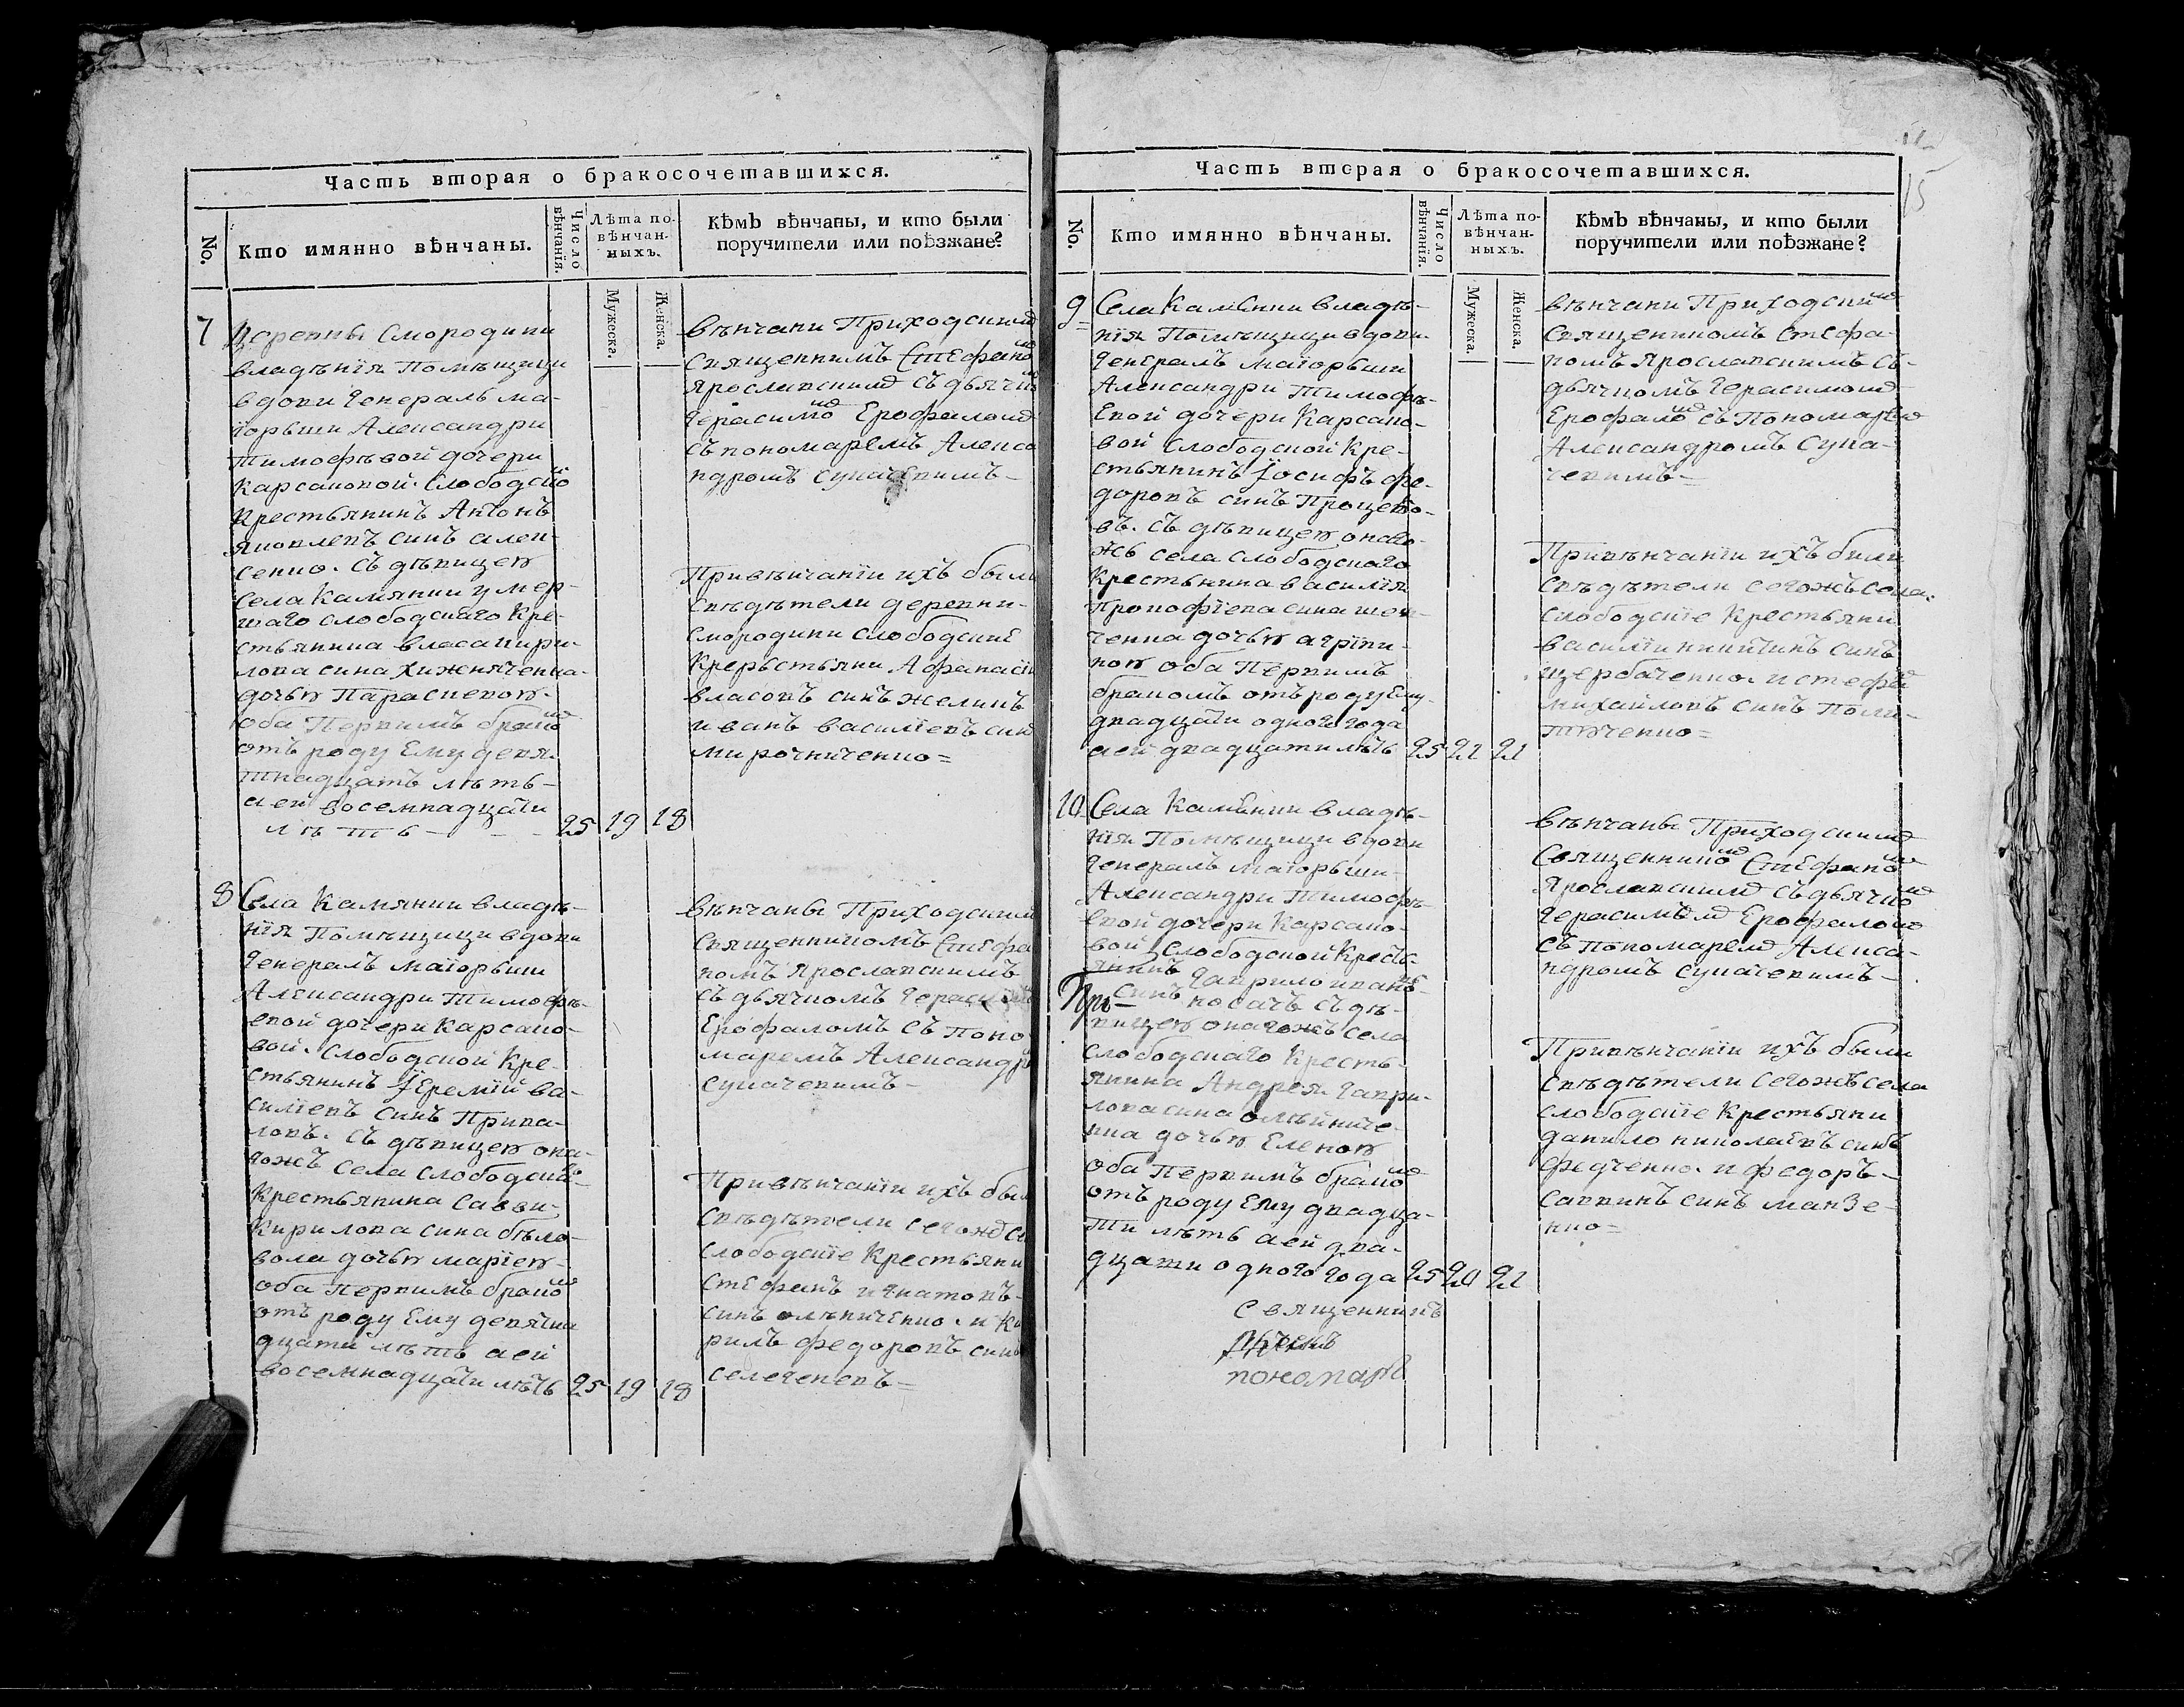 Часть вторая о бракосочетавшихся.
No.
Кто имянно вѣнчаны.
Число вѣнчанїя.
Лѣта по-
вѣнчан-
ныхъ.
Мужеска.
Женска.
Кѣмъ вѣнчаны, и кто были
поручители или поѣзжане?
7
Деревны Смородини
владѣнїя Помѣщици
вдови генералъ ма-
їорьши Александри
Тимофѣвой дочери
Карсаковой. Слободско
Крестьянинъ Антонъ
Яковлевъ синъ алек-
сенко. Съ дѣвицею
Села Камянки умер-
шаго слободскаго Кре-
стьянина власа кири-
лова сина хижняченка-
дочью Параскевою-
оба Первимъ брако
отъ роду Ему девя-
тнадцать лѣтъ-
аей восемнадцати
лѣтъ - - - 25 19 18
вѣнчани Приходским
Священникомъ Стефано
Ярославскимъ съ дьячко
Герасимо Ерофаломъ
съ пономаремъ Алекса
ндромъ Сукачевимъ-
Привѣнчанїи ихъ были
Свѣдѣтели деревни-
Смородини слободские
Кресьстьяни Афанаси
власовъ синъ желинъ
иванъ василїевъ син
мирочниченко=
8
Села Камянки владѣ-
нїя Помѣщици вдови
Генералъ маїорьши
Александри Тимофѣ-
евой дочери Карсако-
вой. Слободской Кре-
стьянинъ Іеремїй ва-
силїевъ синъ Прива-
ловъ. Съ дѣвицею она-
гожъ села слободска-
Крестьянина Савви-
Кирилова сина бѣло-
вола дочью марїею-
оба первимъ брако
отъ роду Ему девятна
дцати лѣтъ аей
восемнадцати лѣтъ 25 19 18
вѣнчаны Приходским
Священникомъ Стефа
номъ Ярославскимъ
съ дьячкомъ Гераси
Ерофаломъ съ поно
маремъ Александр
Сукачевимъ-
Привѣнчанїи ихъ был
Свѣдѣтели сегожъ с
Слободскїе Крестьяни
Стефанъ игнатовъ-
синъ олѣниченко. и Ки
рилъ федоровъ син
селегеневъ=
Часть вторая о бракосочетавшихся.
No.
Кто имянно вѣнчаны.
Число вѣнчанїя.
Лѣта по-
вѣнчан-
ныхъ.
Мужеска.
Женска.
Кѣмъ вѣнчаны, и кто были
поручители или поѣзжане?
15
9
Села Камѣнки владѣ-
нїя Помѣщици вдови
Генералъ маїорьши
Александри Тимофѣ-
Евой дочери Карсако-
вой Слободской Кре-
стьянинъ Іосифъ фе-
доровъ синъ Процено-
въ. Съ дѣвицею онаго-
жъ села слободскаго
Крестьянина василїя
Прокофїева сина шев-
ченка дочью агрїпи-
ною оба Первимъ
бракомъ отъ роду Ему-
двадцати одного года
аей двадцати лѣтъ 25 21 21
вѣнчани Приходским
Священникомъ Стефа-
номъ Ярославскимъ съ-
дьячкомъ Герасимомъ
Ерофало съ Пономаремъ
Александромъ Сука-
чевимъ=
Привѣнчанїи ихъ были
Свѣдѣтели сегожъ села.
слободскїе Крестьяни
василїи никитинъ синъ
щербаченко. и стефа
михайловъ синъ Поли-
тюченко=
10
Села Камѣнки владѣ-
нїя Помѣщици вдови
Генералъ маїорьши-
Александри Тимофѣ-
евой дочери Карсако-
вой Слободской Кресть-
янинъ Гаврило ивано-
синъ носачъ съ дѣ-
вицею онагожъ села
Слободскаго Кресть-
янина Андрея Гаври-
лова сина олѣйниче-
нка дочью Еленою
оба Первимъ брако
отъ роду Ему двадца-
ти лѣтъ аей два-
дцати одного года 25 20 21
Священникъ
пономарь
вѣнчаны Приходским
Священнико Стефано
Ярославскимъ съ дьячко
Герасимом Ерофалом
съ Пономарем Алекса-
ндромъ Сукачевимъ-
Привѣнчанїи ихъ были
Свѣдѣтели сегожъ села
Слободскїе Крестьяни
данило николаевъ синъ
федченко. и федоръ-
саввинъ синъ манзе-
нко=